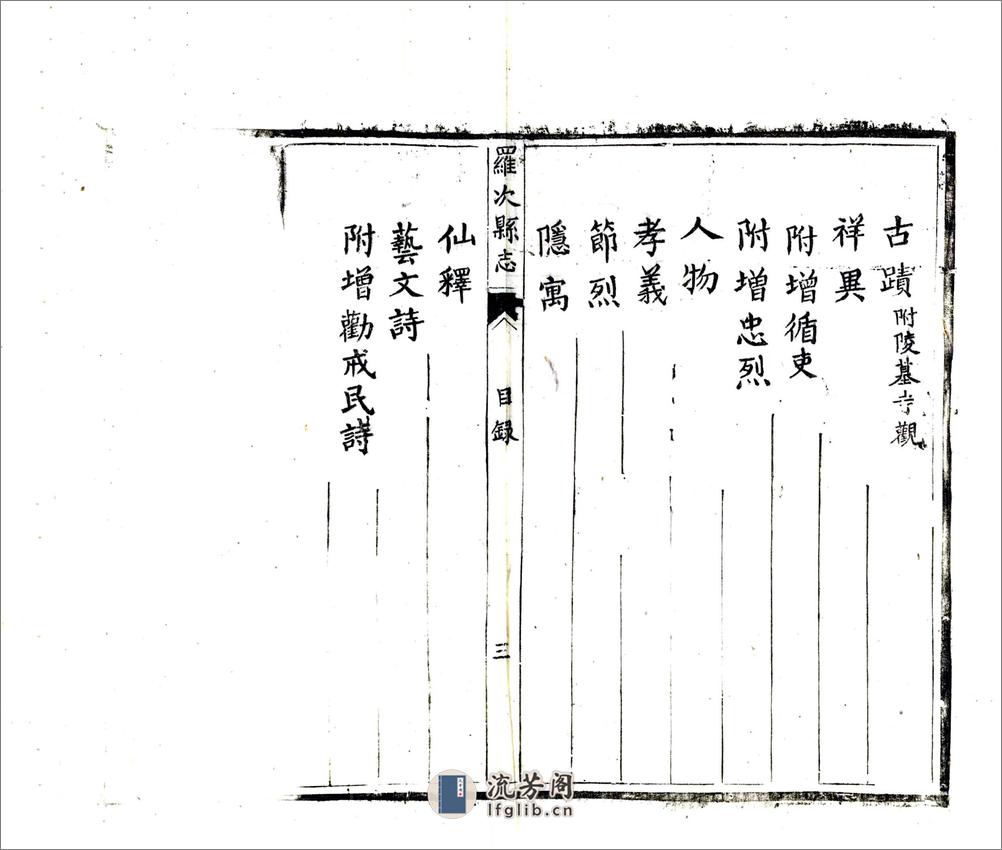 古蹟附陵墓寺觀
祥異
附增循吏
附增忠烈
人物
孝義
節烈
隱寓
羅次縣志
目録
三
仙釋
藝文詩
附增勸戒民詩
流芳阁
lfglib.cn